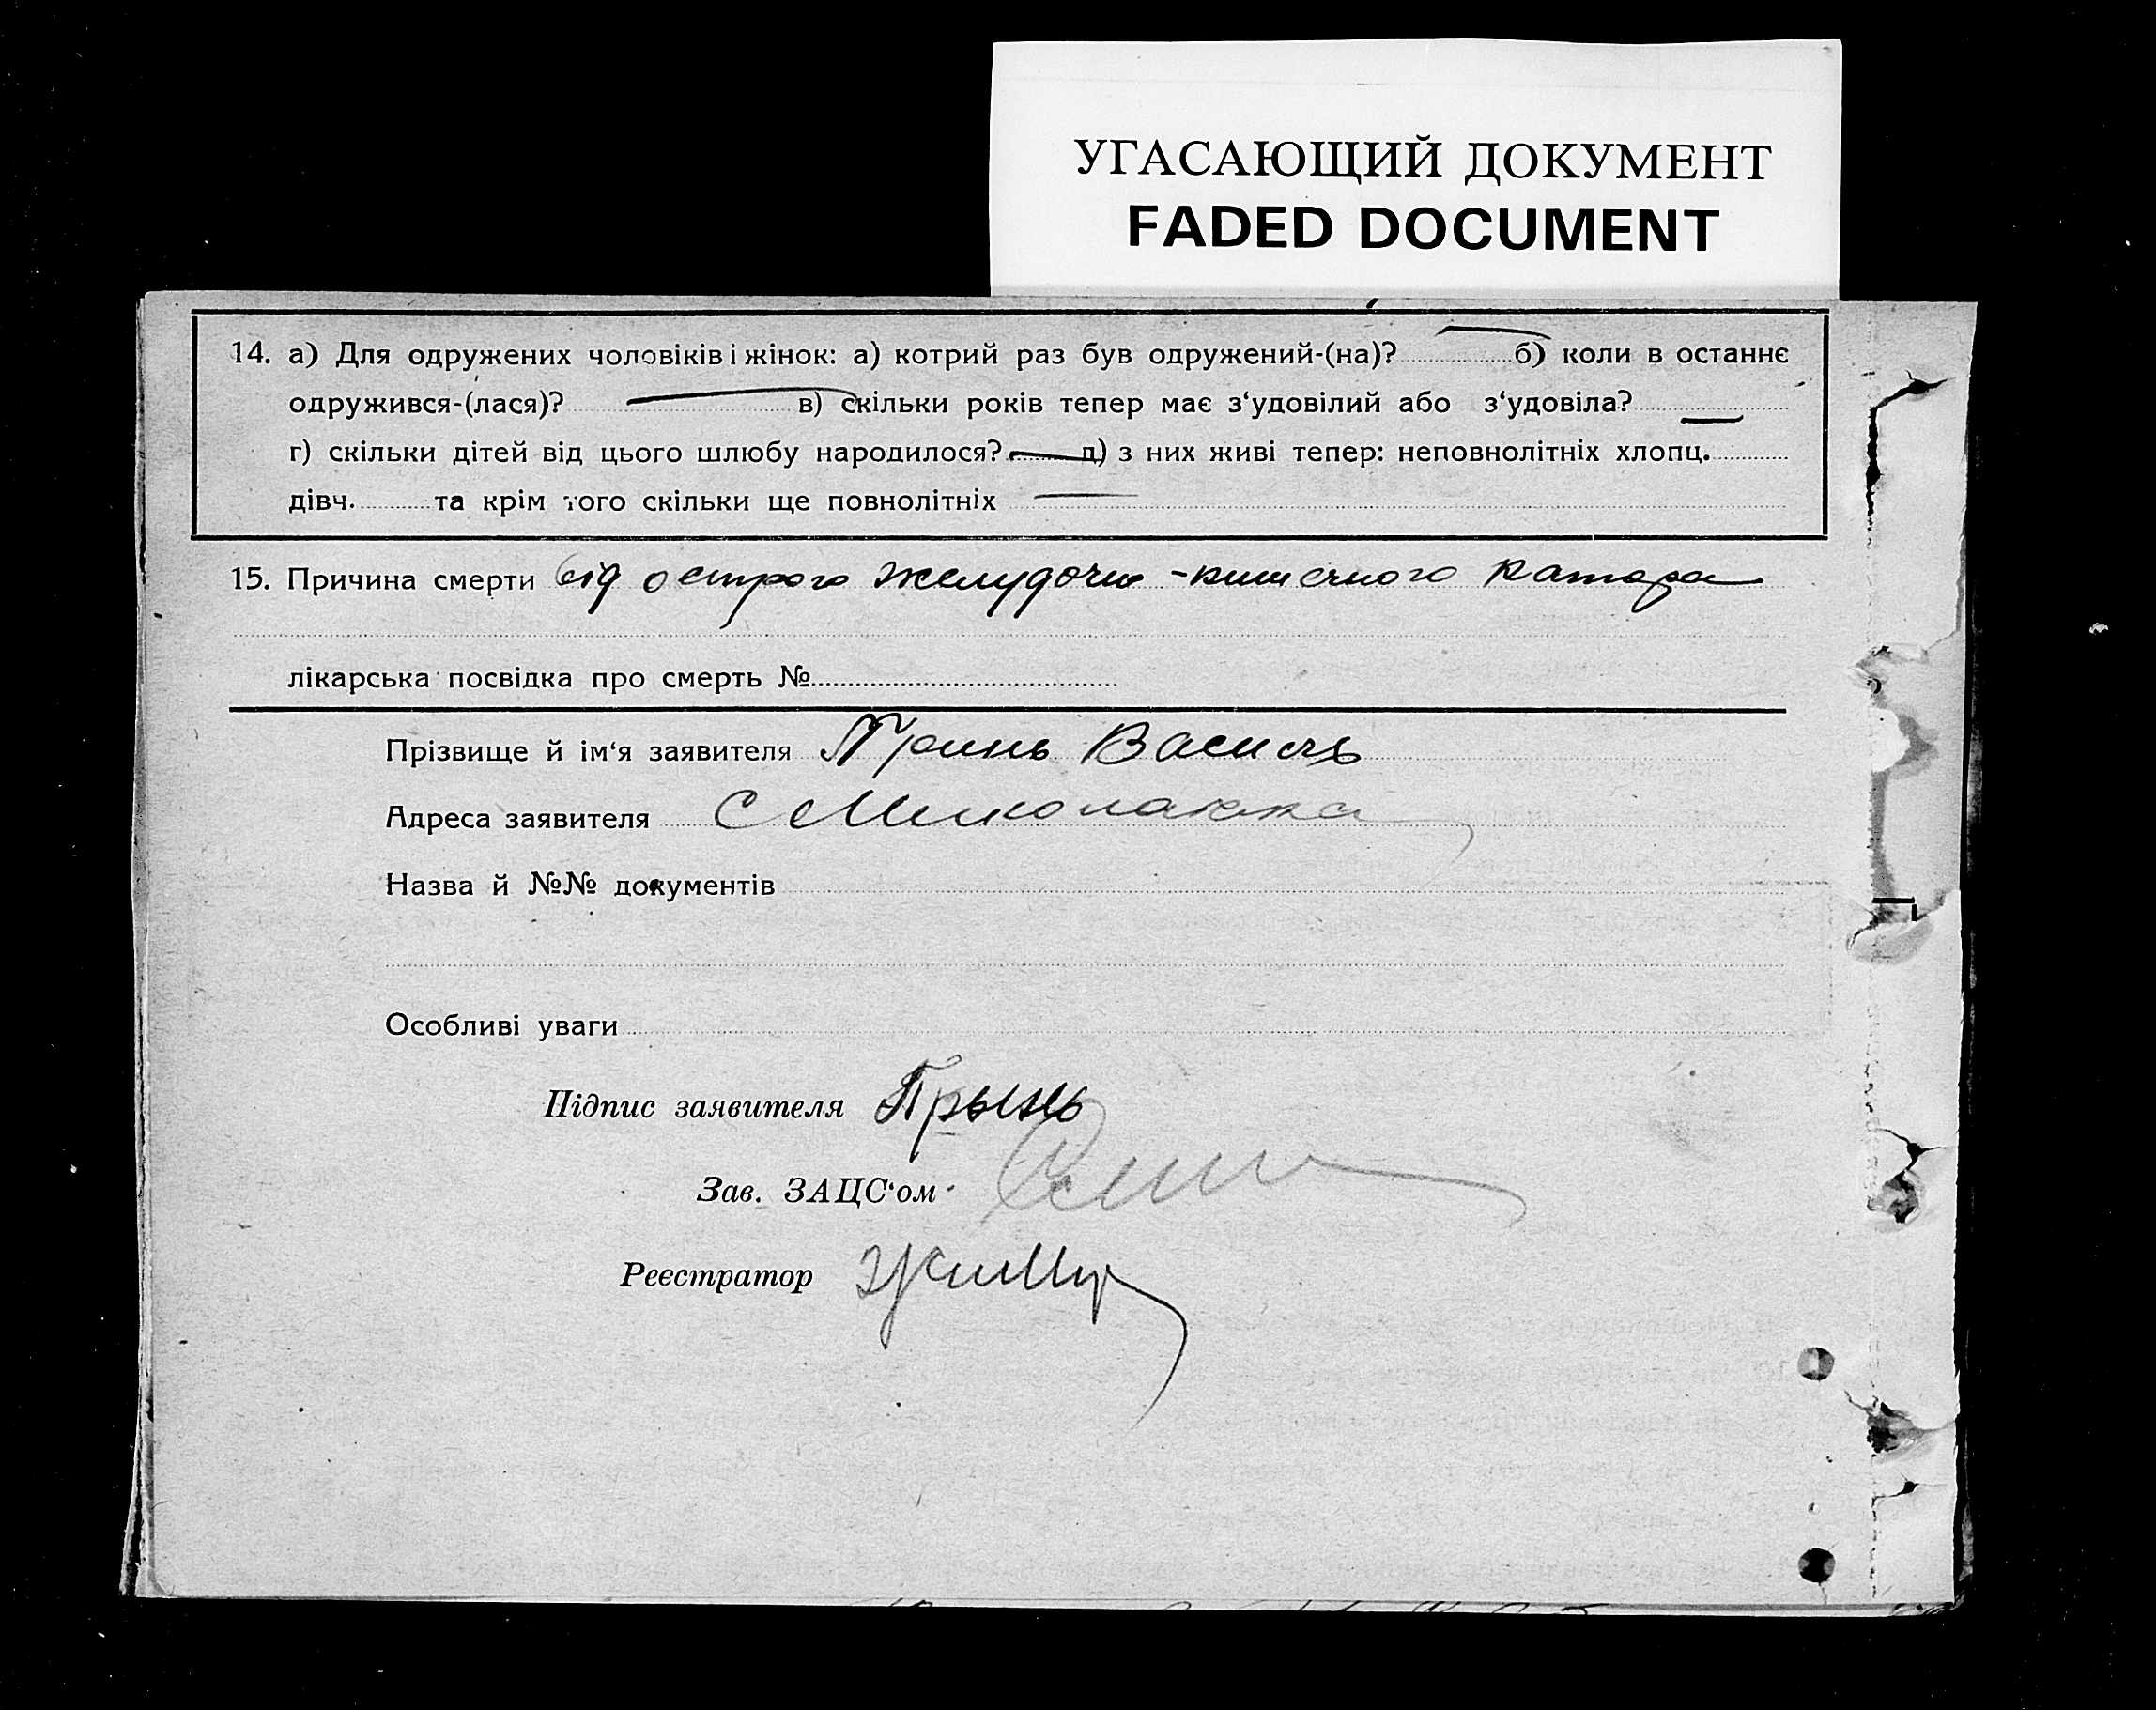 УГАСАЮЩИЙ ДОКУМЕНТ
FADED DOCUMENT
14. а) Для одружених чоловіків і жінок: а) котрий раз був одружений-(на)? б) коли в останнє
одружився-(лася)? в) скільки років тепер має з‘удовілий або з‘удовіла?
г) скільки дітей від цього шлюбу народилося? д) з них живі тепер: неповнолітніх хлопц.
дівч. та крім того скільки ще повнолітніх
15. Причина смерти від острого желудочно-кишечного катара
лікарська посвідка про смерть №
Прізвище й ім‘я заявителя Гринь Василь
Адреса заявителя с Миколаївка
Назва й №№ документів
Особливі уваги
Підпис заявителя Грынь
Зав. ЗАЦС‘ом
Реєстратор